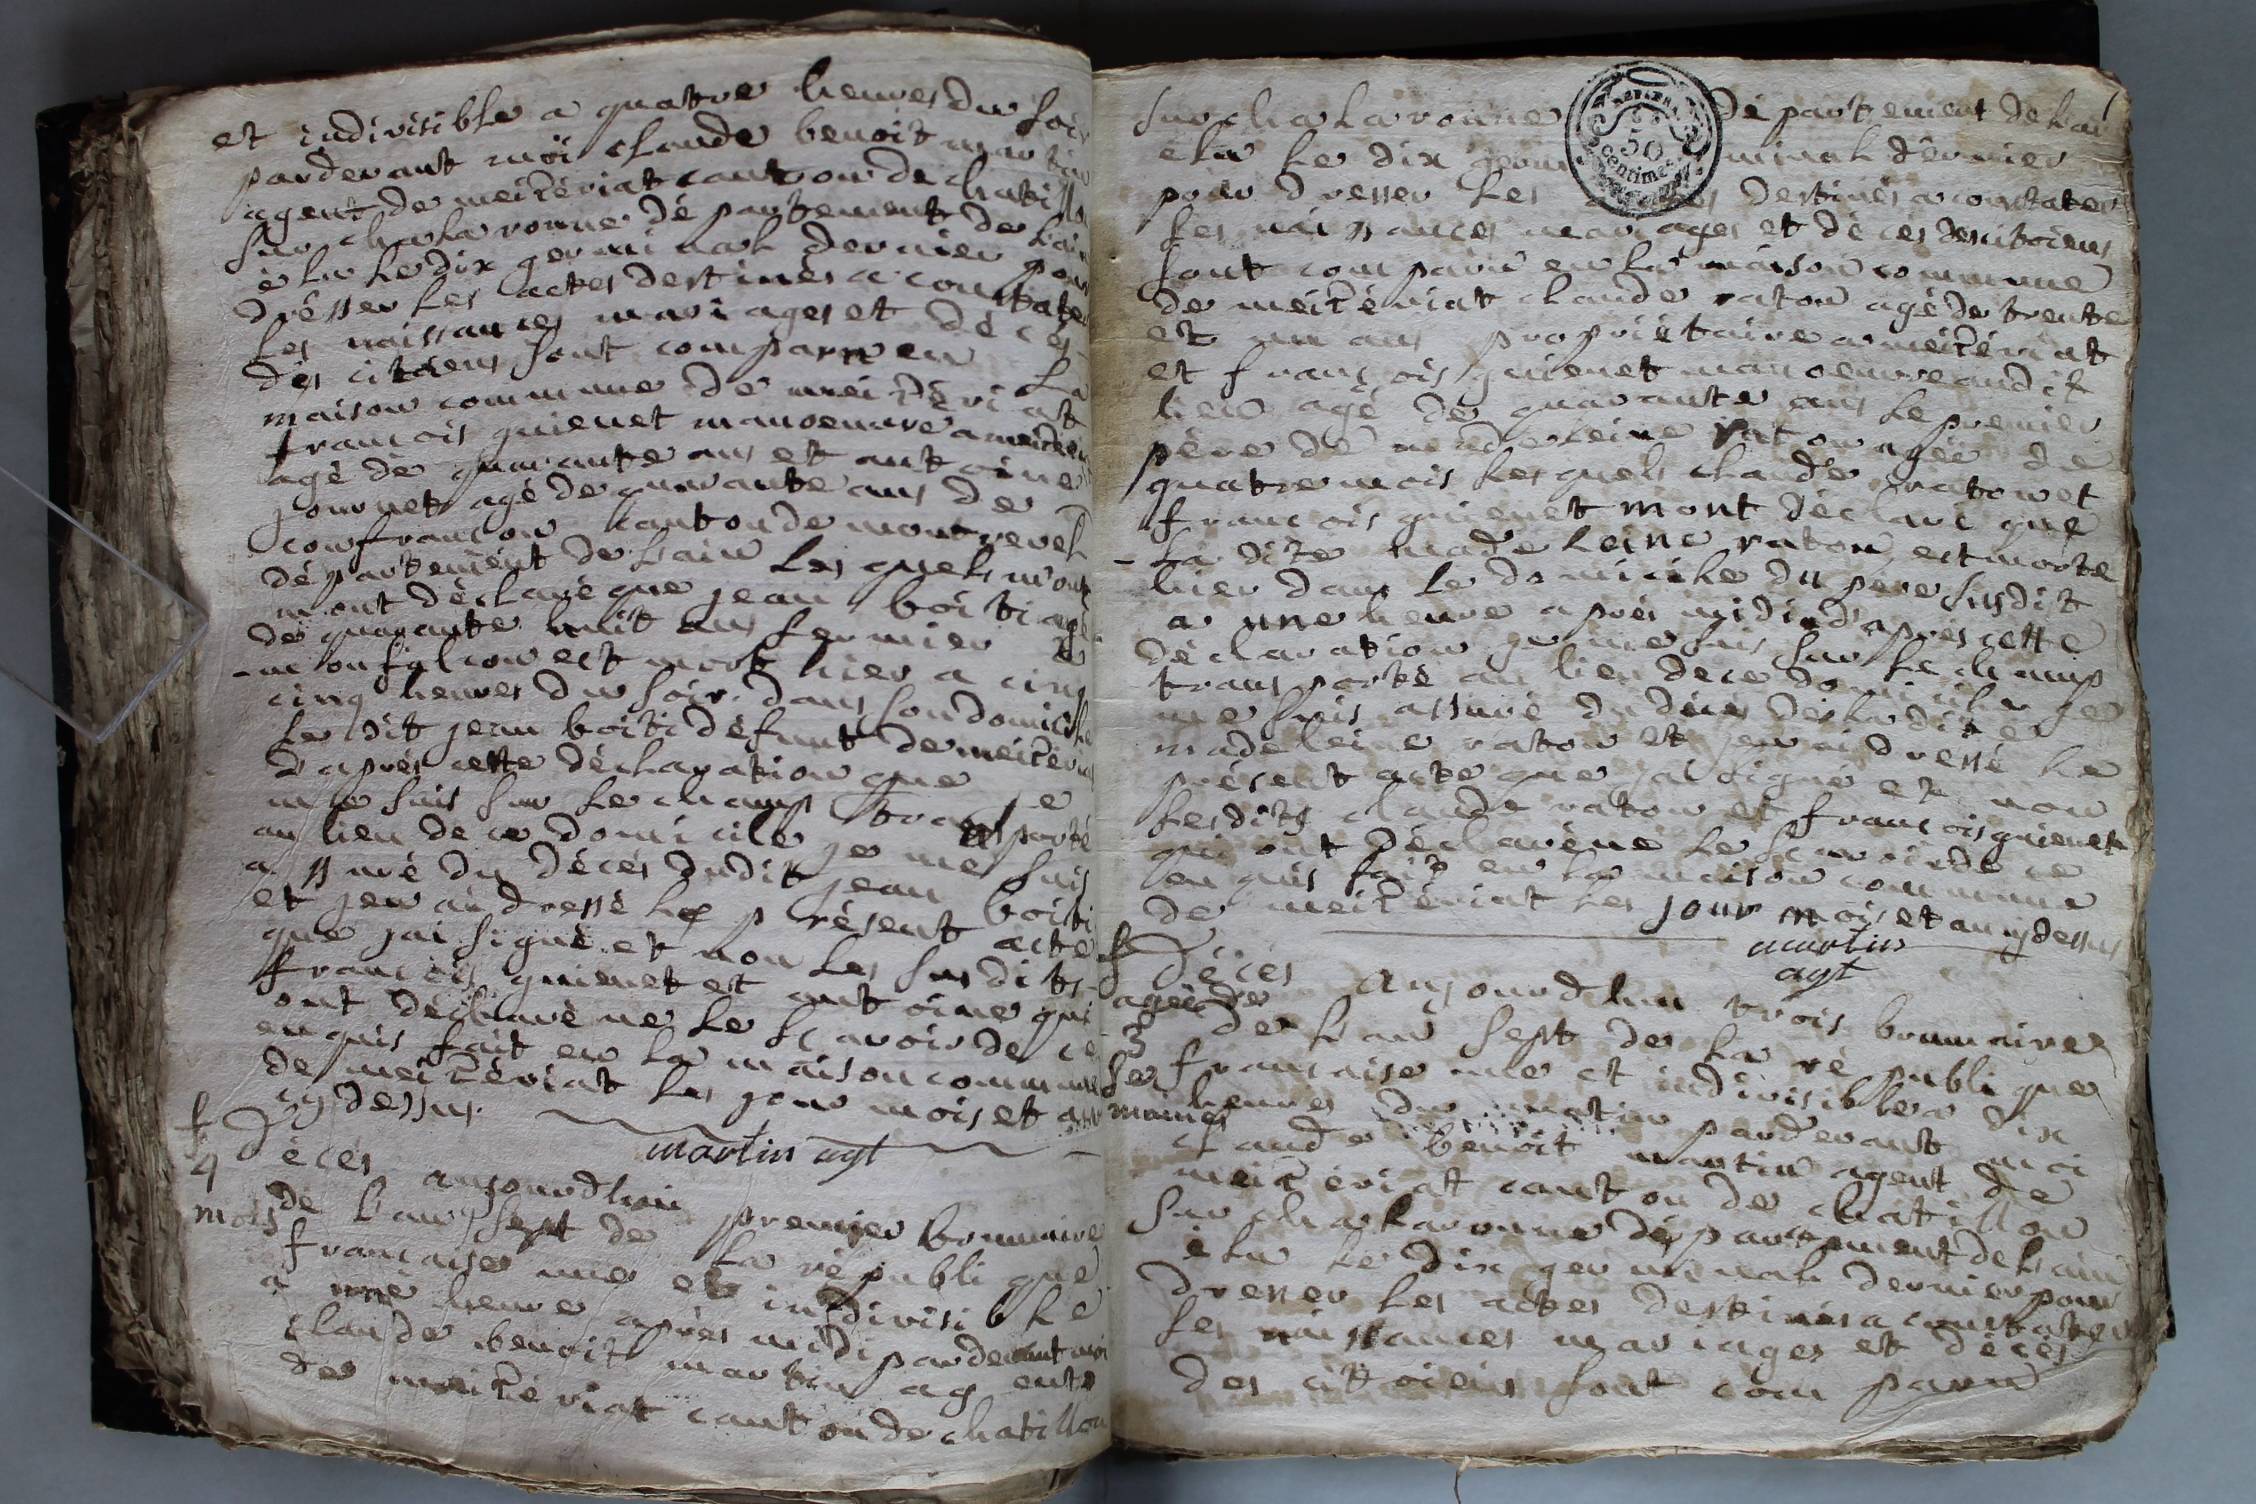 et indivisible a quatre heures du soir
pardevant moi claude benoit martin
agent de meizériat canton de chatillon
sur chalaronne département de l'ain
élu le dix germinal dernier pour
drésser les actes destinés a constater
les naissances mariages et décés
des citoiens sont comparu en la
maison commune de meizériat
francois guienet manoeuvre a meizériat
agé de quarante ans et antoine
journet agé de quarante ans de
confrancon canton de montrevel
département de l'ain les quels m'ont
mont déclaré que jean boiti agé
de quarante huit ans fermier a
- monfalcon est mort hier a cinq
cinq heures du soir dans son domicile
le dit jean boiti défunt de meizériat
d'aprés cette déclaration que je
me suis sur le champ transporté
au lieu de ce domicile je me suis
assuré du décés dudit jean boiti
et jen ai dressé le présent acte
que jai signé et non les susdits
francois guienet et antoine qui
ont déclaré ne le scavoir de ce
enquis fait en la maison commune
de meizériat les jour mois et an
cy dessus.
martin agt
f
4
mois
Décés aujourdhui premier brumaire
de l'an sept de la républi que
francaise une et indivisible
a une heure aprés midi pardevant moi
claude benoit martin agent
de meizériat canton de chatillon
sur chalaronne département de l'ain
50
centimes
élu le dix germinal dernier
pour dresser les actes destinés a constater
les naissances mariages et décés des citoiens
sont comparu en la maison commune
de meizériat claude raton agé de trente
et un ans propriétaire a meizériat
et francois guienet manoeuvre audit
lieu agé de quarante ans le premier
pére de madeleine raton agée de
quatre mois lesquels claude raton et
francois guienet mont déclaré que
- la dite madeleine raton est morte
hier dans le domicile du pere susdit
a une heure aprés midi d'aprés cette
déclaration je me suis sur le champ
transporté au lieu de ce domicile je
me suis assuré du décés de la dite
madeleine raton et jen ai dressé le
présent acte que jai signé et non
lesdits claude raton et francois guienet
qui ont déclaré ne le scavoir de ce
enquis fait en la maison commune
de meizériat les jour mois et an cy dessus
martin
agt
f
agée de
3
se
maines
Décés aujourdhui trois brumaire
de l'an sept de la républi que
francaise une et indivisible a dix
heures du matin pardevant moi
claude benoit martin agent de
meizériat canton de chatillon
sur chalaronne département de l'ain
élu le dix germinal dernier pour
dresser les actes destinés a constater
les naissances mariages et décés
des citoiens sont com paru